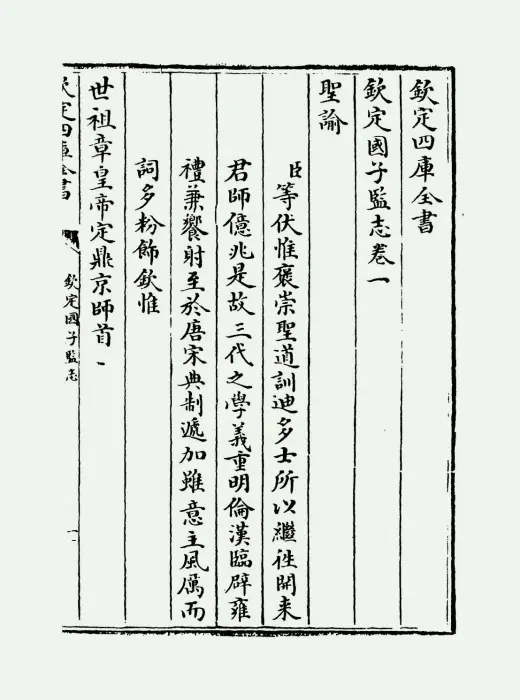 欽定四庫全書
欽定國子監志卷一
聖諭
臣等伏惟褒崇聖道訓迪多士所以繼徃開来
君師億兆是故三代之學義重明倫漢臨辟雍
禮兼饗射至於唐宋典制遞加雖意主風厲而
詞多粉飾欽惟
世祖章皇帝定鼎京師首
欽定四庫全書
欽定國子監志